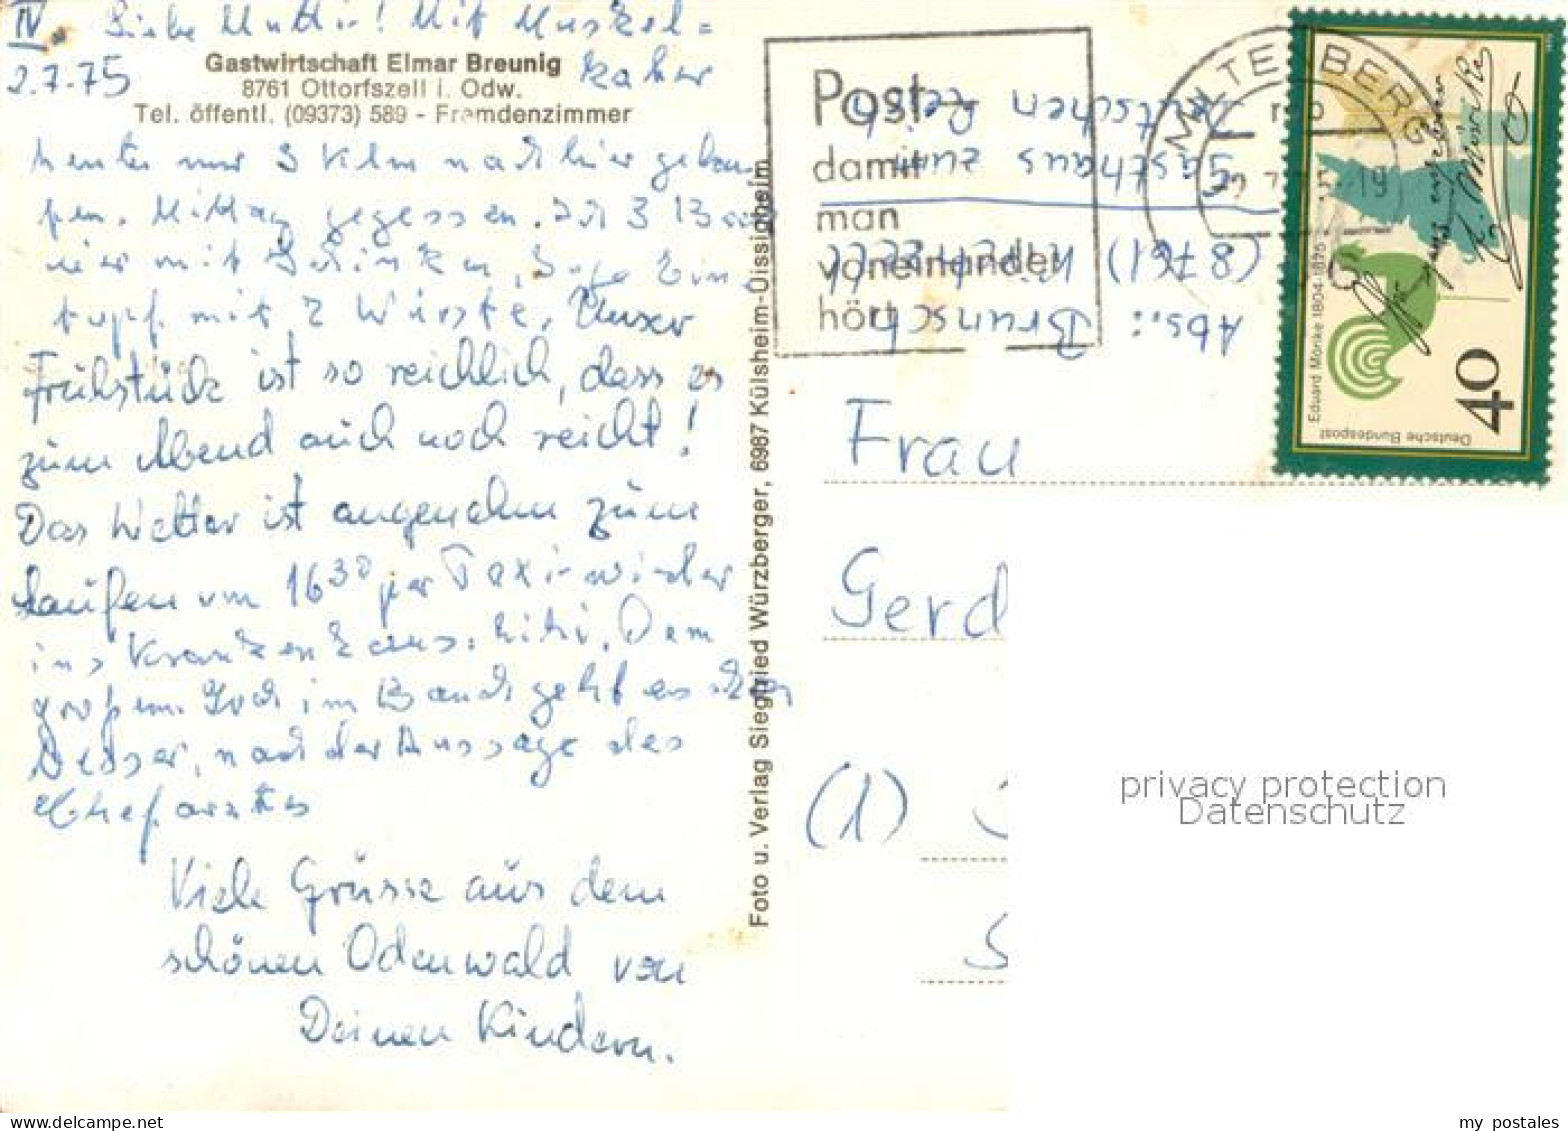 IV. Liebe Mutti! Mit Muskel=
2.7.75
Gastwirtschaft Elmar Breunig
kater
8761 Ottorfszell i. Odw.
Tel. öffentl. (09373) 589 - Fremdenzimmer
heute nur 3 Klm nach hier gelau-
fen. Mittag gegessen.
mit Schinken, Ein-
topf mit 2 Würste. Unser
Frühstück ist so reichlich, dass es
zum Abend auch noch reicht!
Das Wetter ist angenehm zum
laufen um 16³⁰ per Taxi wieder
ins Krankenhaus. Dem
großem Loch im Bauch geht es schon
besser, nach der Aussage des
Chefarztes
Viele Grüsse aus dem
schönen Odenwald von
Deinen Kindern.
Foto u. Verlag Siegfried Würzberger, 6987 Külsheim-Uissigheim
Post-
damit
man
voneinander
hört
MILTENBERG
Abs.: Brunsch
(8761)
Gasthaus zum
Deutschen
Deutsche Bundespost
40
Eduard Mörike 1804-1875
E. Mörike
Frau
Gerd
(1)
S
privacy protection
Datenschutz
my postales